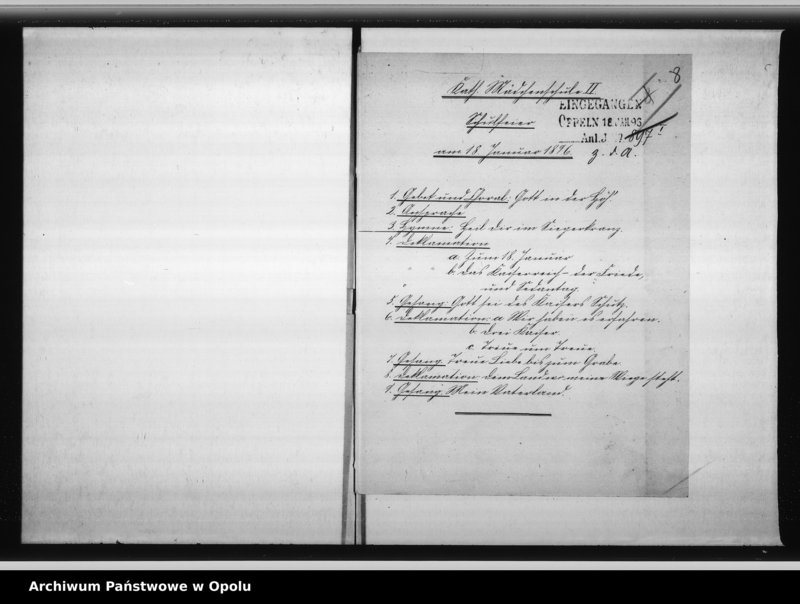 8
Kath. Mädchenschule II.
EINGEGANGEN
Schulfeier
OPPELN 18. JAN. 96
Anl. J
897
am 18. Januar 1896.
z. d. A.
1. Gebet und Choral: Gott in der Höh.
2. Ansprache
3. Hymne: Heil dir im Siegerkranz.
4. Deklamation
a. Zum 18. Januar
b. Das Kaiserreich – der Friede,
und Sedantag.
5. Gesang: Gott sei des Kaisers Schutz.
6. Deklamation: a. Wir haben es erfahren.
b. Drei Kaiser
c. Treue um Treue.
7. Gesang: Treue Liebe bis zum Grabe
8. Deklamation: Dem Lande, wo meine Wiege steht.
9. Gesang: Mein Vaterland.
Archiwum Państwowe w Opolu